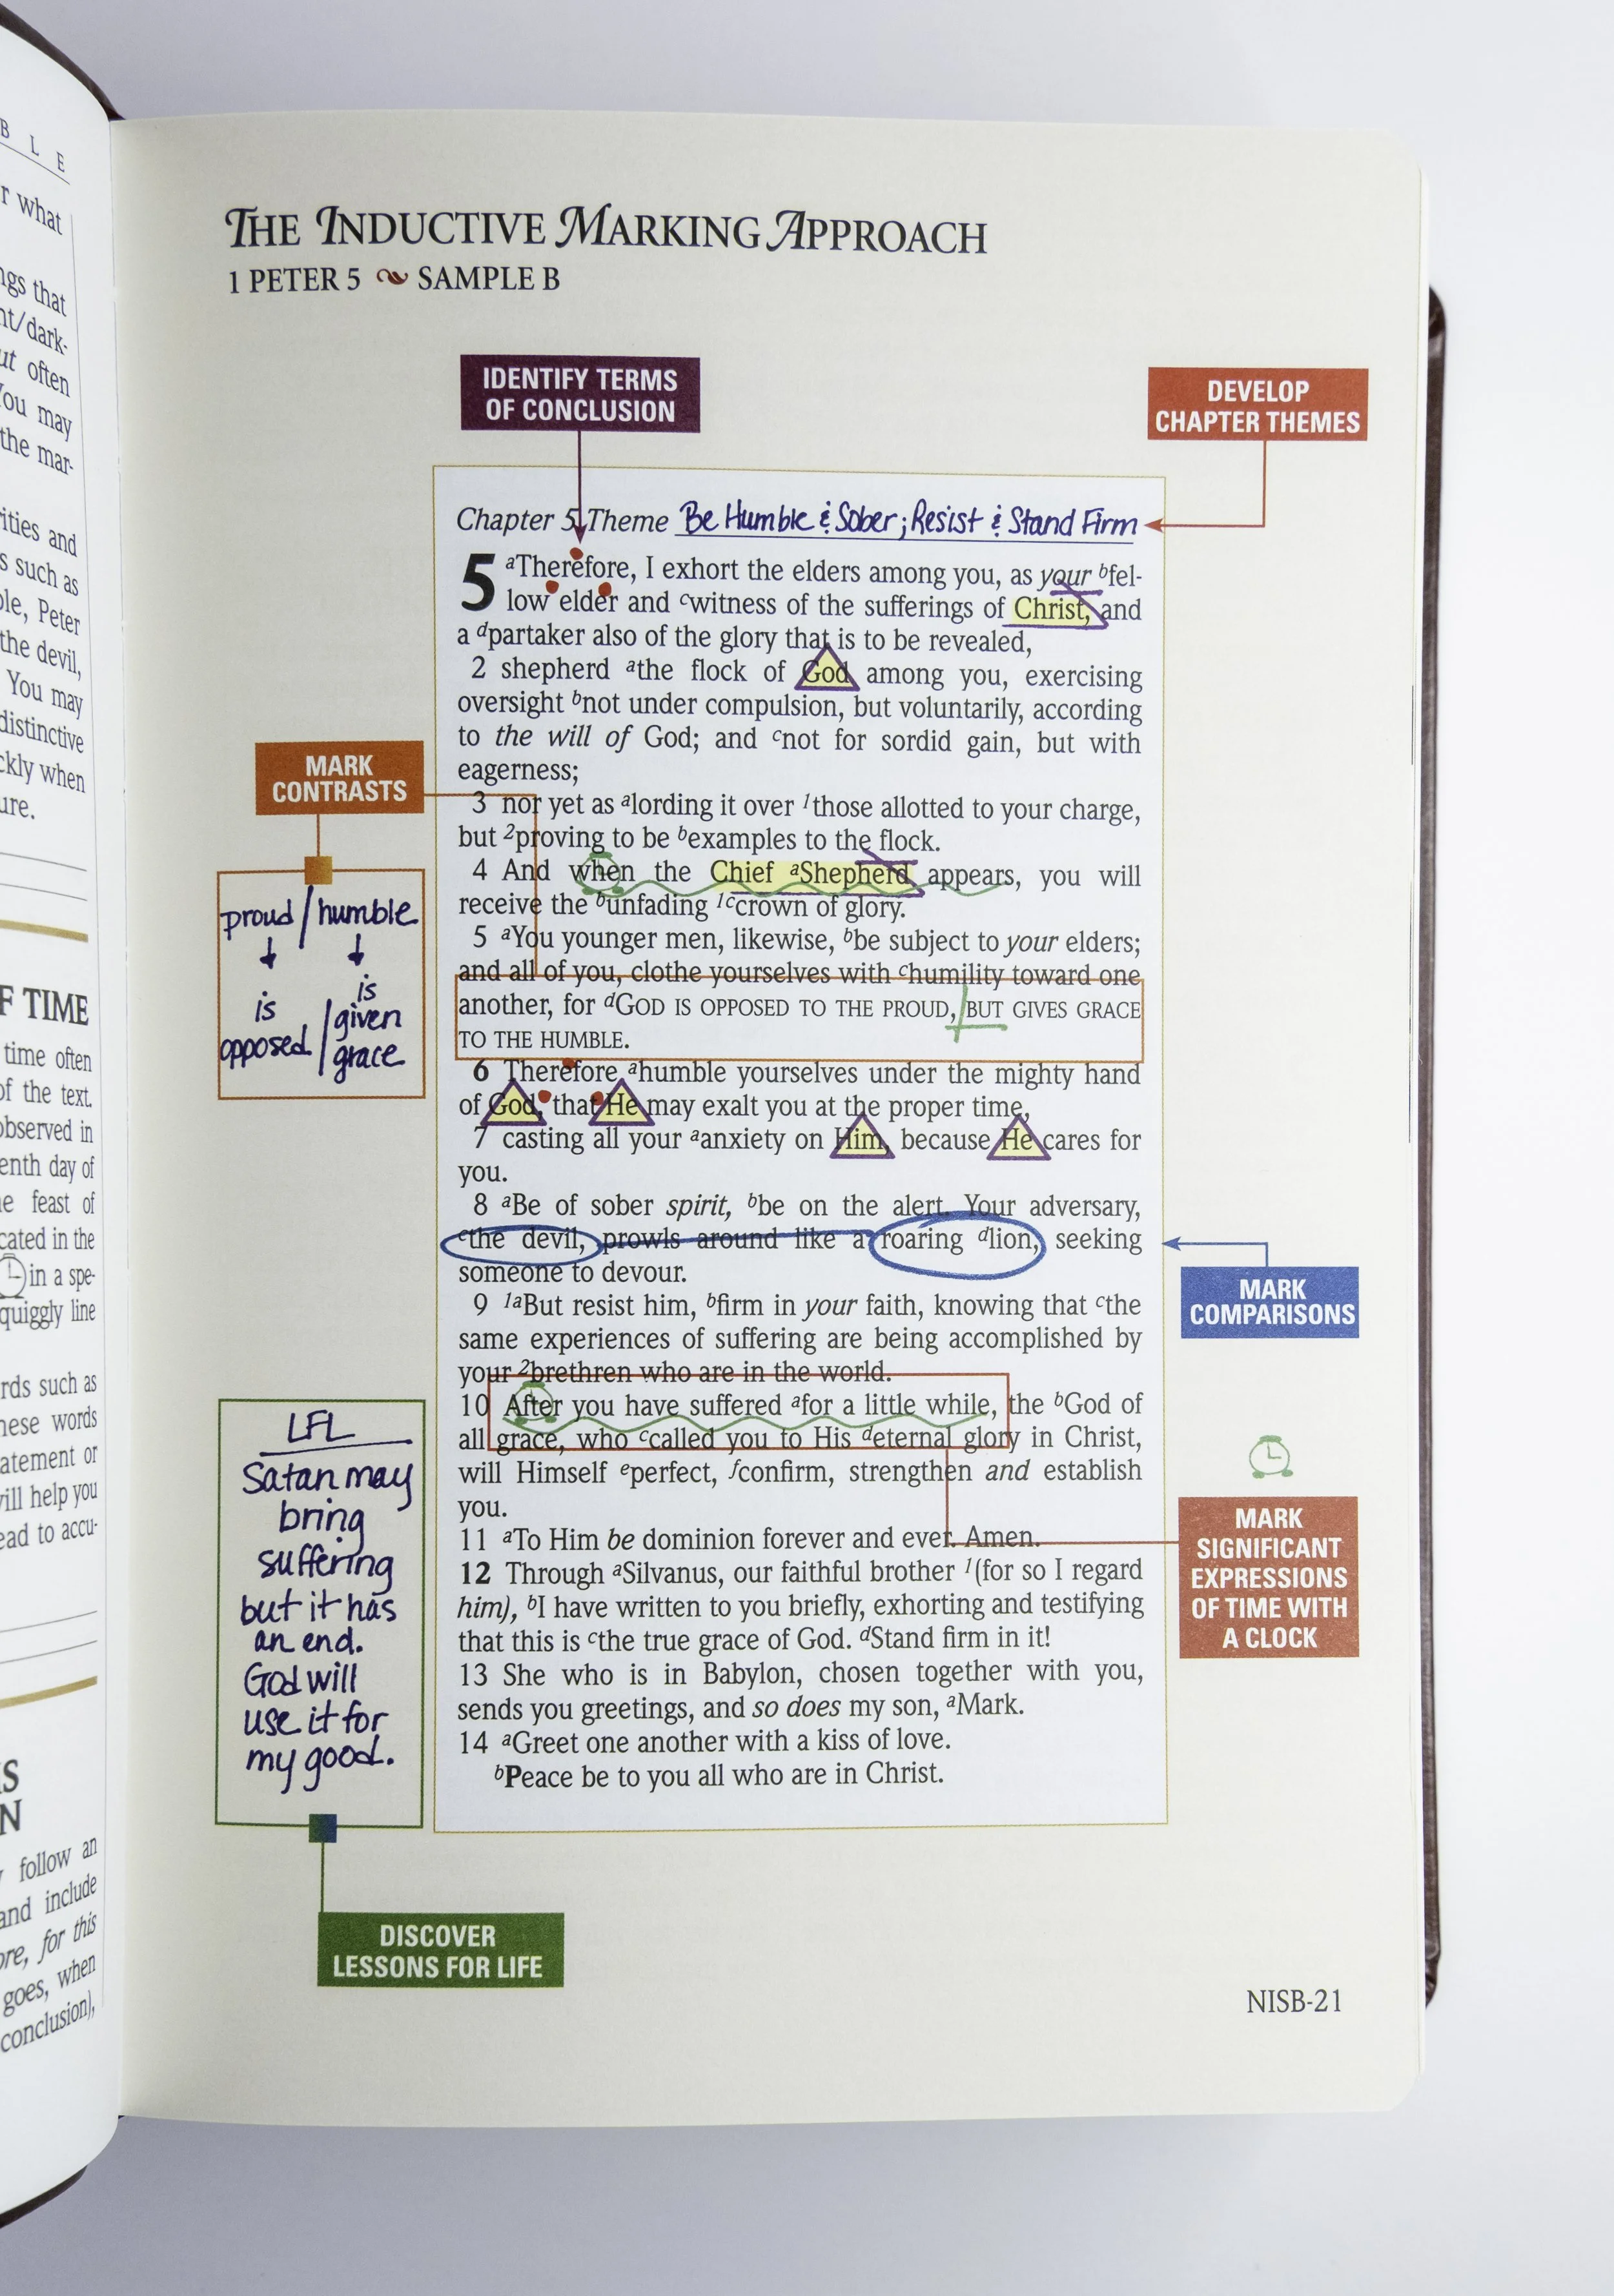 B L E
r what
ngs that
nt/dark-
ut often
You may
the mar-
rities and
s such as
ole, Peter
the devil,
You may
distinctive
ckly when
ure.
F TIME
time often
of the text.
observed in
enth day of
e feast of
cated in the
in a spe-
quiggly line
rds such as
hese words
atement or
will help you
ead to accu-
S
N
follow an
and include
ore, for this
goes, when
conclusion),
THE INDUCTIVE MARKING APPROACH
1 PETER 5 SAMPLE B
IDENTIFY TERMS
OF CONCLUSION
DEVELOP
CHAPTER THEMES
Chapter 5 Theme Be Humble & Sober; Resist & Stand Firm
5 aTherefore, I exhort the elders among you, as your bfel-
low elder and cwitness of the sufferings of Christ, and
a dpartaker also of the glory that is to be revealed,
2 shepherd athe flock of God among you, exercising
oversight bnot under compulsion, but voluntarily, according
to the will of God; and cnot for sordid gain, but with
eagerness;
3 nor yet as alording it over 1those allotted to your charge,
but 2proving to be bexamples to the flock.
4 And when the Chief aShepherd appears, you will
receive the bunfading 1ccrown of glory.
5 aYou younger men, likewise, bbe subject to your elders;
and all of you, clothe yourselves with chumility toward one
another, for dGOD IS OPPOSED TO THE PROUD, BUT GIVES GRACE
TO THE HUMBLE.
6 Therefore ahumble yourselves under the mighty hand
of God, that He may exalt you at the proper time,
7 casting all your aanxiety on Him, because He cares for
you.
8 aBe of sober spirit, bbe on the alert. Your adversary,
cthe devil, prowls around like a roaring dlion, seeking
someone to devour.
9 1aBut resist him, bfirm in your faith, knowing that cthe
same experiences of suffering are being accomplished by
your 2brethren who are in the world.
10 After you have suffered afor a little while, the bGod of
all grace, who ccalled you to His deternal glory in Christ,
will Himself eperfect, fconfirm, strengthen and establish
you.
11 aTo Him be dominion forever and ever. Amen.
12 Through aSilvanus, our faithful brother 1(for so I regard
him), bI have written to you briefly, exhorting and testifying
that this is cthe true grace of God. dStand firm in it!
13 She who is in Babylon, chosen together with you,
sends you greetings, and so does my son, aMark.
14 aGreet one another with a kiss of love.
bPeace be to you all who are in Christ.
MARK
CONTRASTS
proud / humble
is
is
given
opposed / grace
LFL
Satan may
bring
suffering
but it has
an end.
God will
use it for
my good.
DISCOVER
LESSONS FOR LIFE
MARK
COMPARISONS
MARK
SIGNIFICANT
EXPRESSIONS
OF TIME WITH
A CLOCK
NISB-21